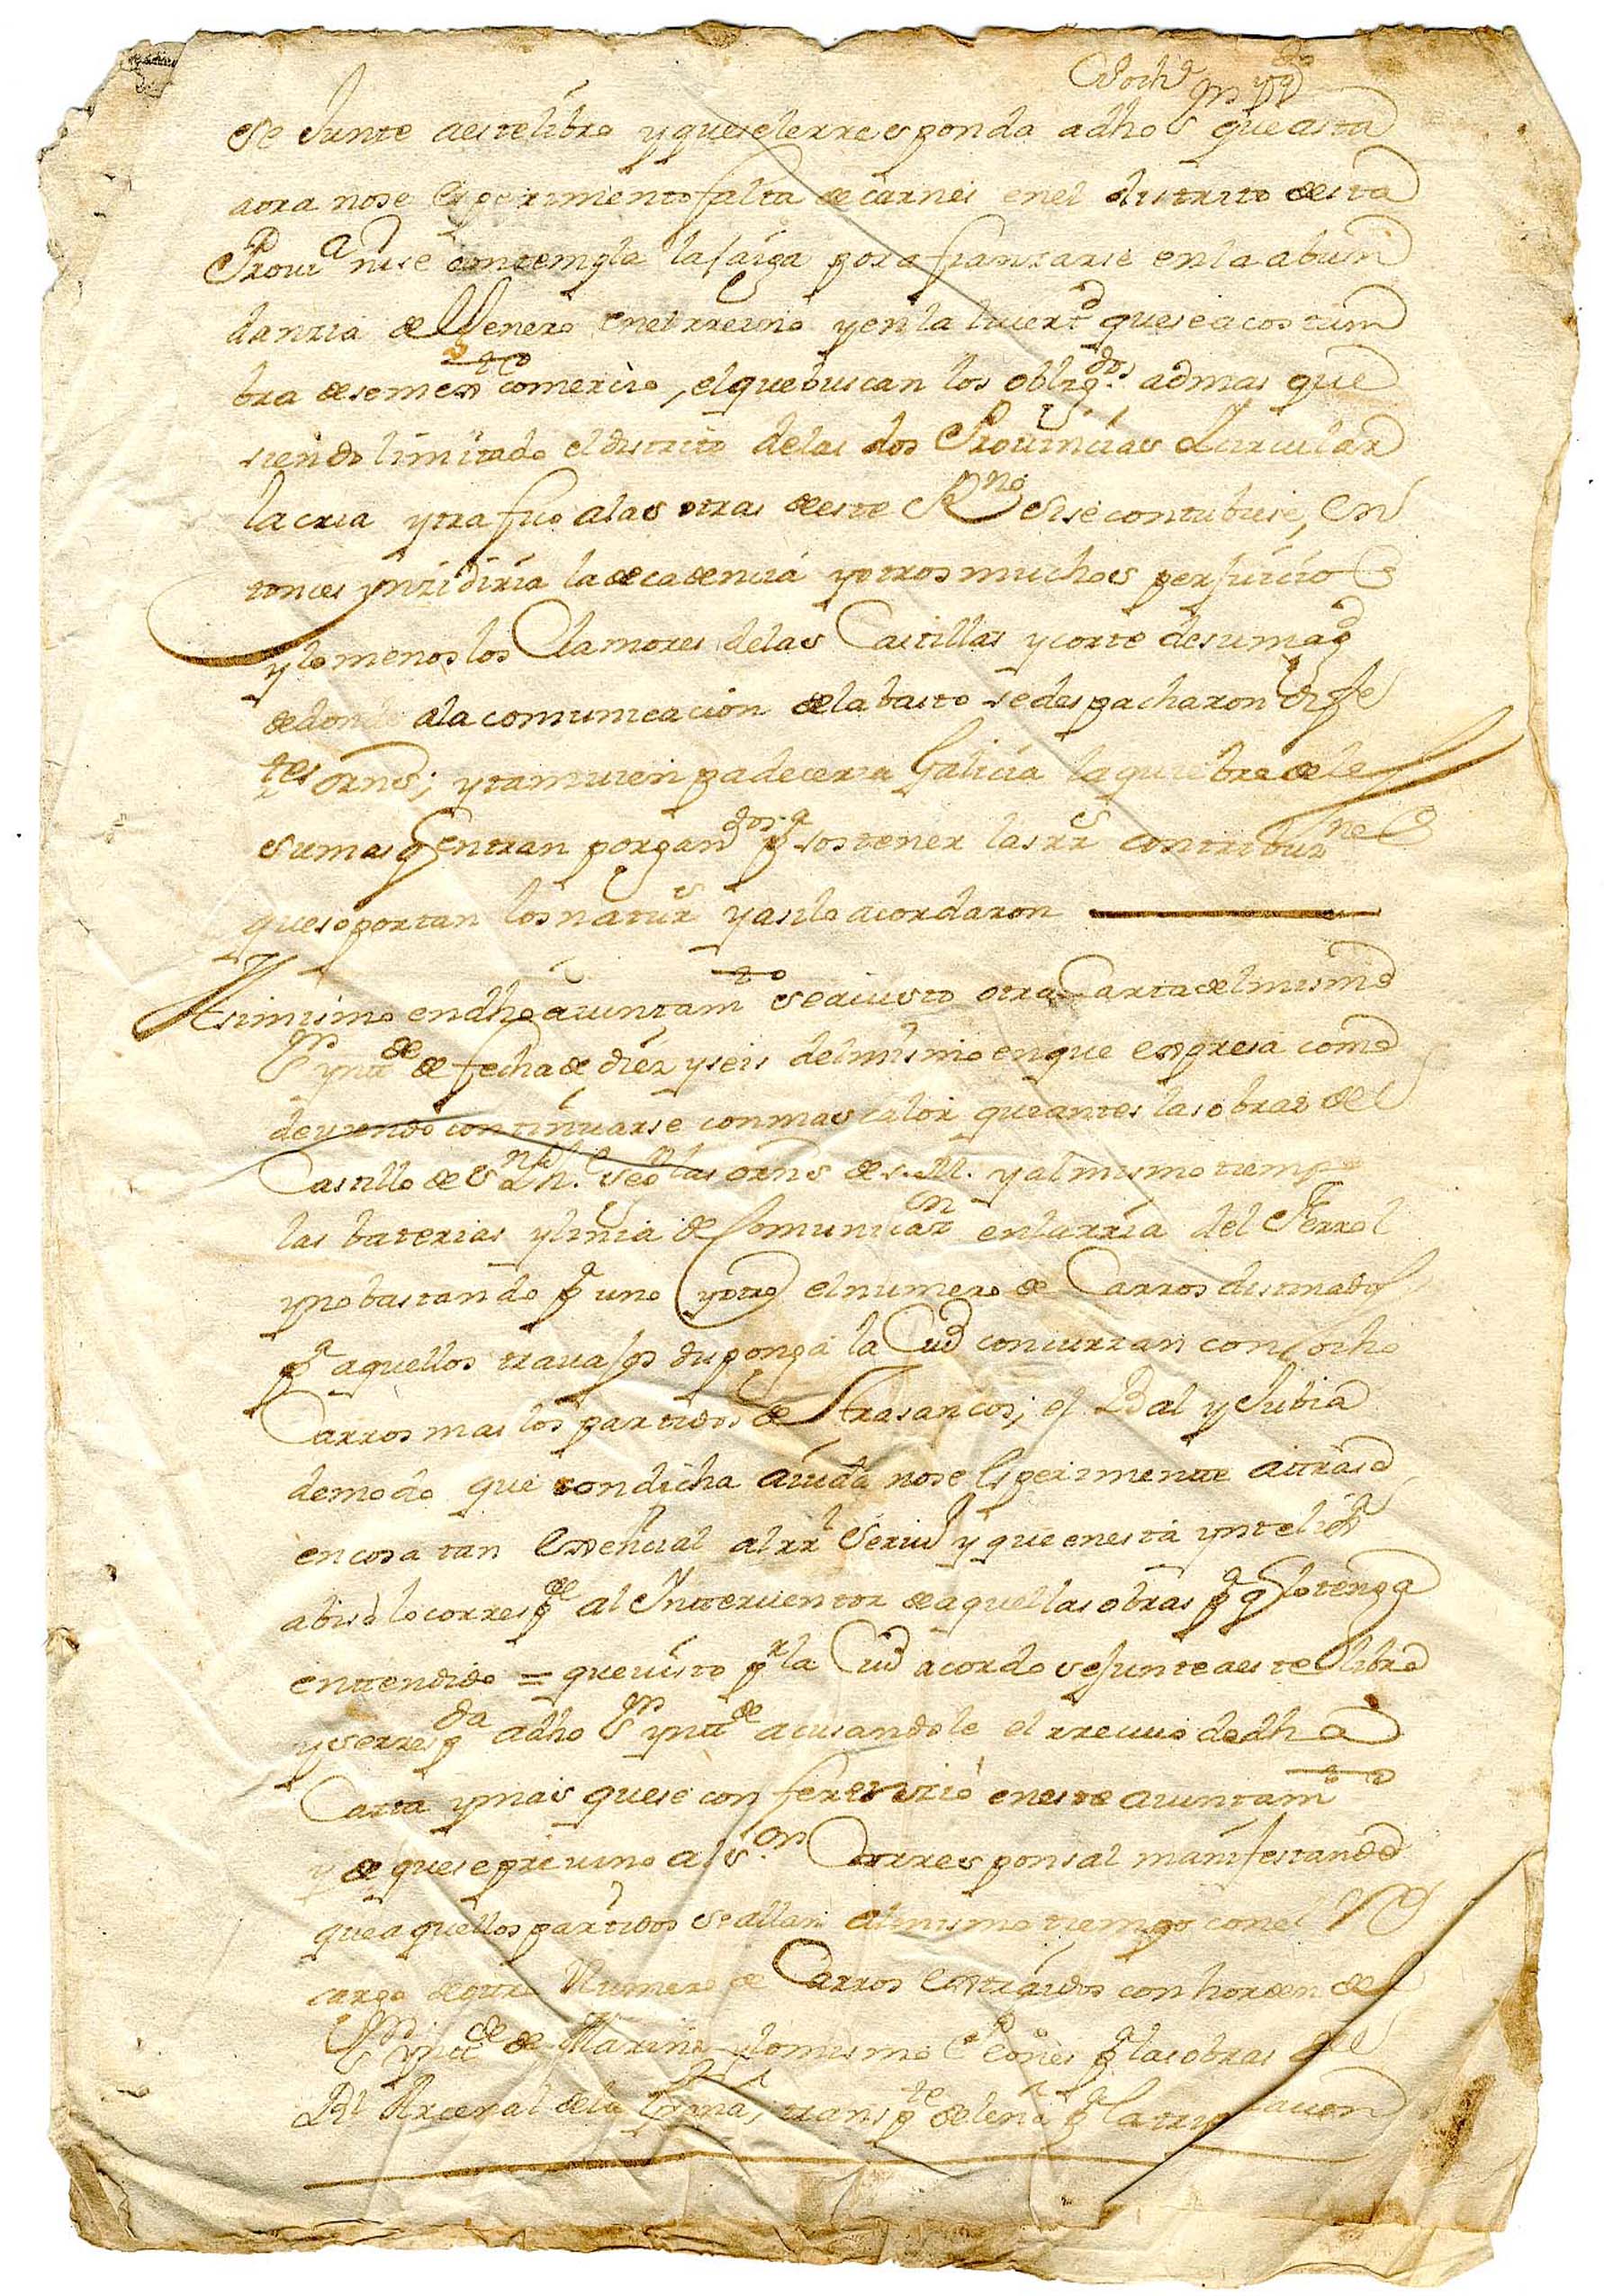 se Junte aeste libro y que se le rresponda adho Sr que asta
aora no se Esperimento falta de carnes en el distrito desta
Provª ni se contempla la saiga por afianzarse en la abun
danzia del Genero en el rreino y en la livertd que se acostum
bra de semejte comercio, el que buscan los obligdos ademas que
siendo limitado el distrito de las dos Provincias Zircular
la cria y trafico a las otras de este Rno si se contubiese, En
tonces ynzidiria la decadencia y otros muchos perjuicios
y lo menos los Clamores de las Castillas y corte de su magd
de donde a la comunicacion del abasto se despacharon dife
tes orns; y tamvien padeceria Galicia la quiebra de le
sumas q entran por ganados pª sostener las rrs contribuznes
que soportan los naturs y asi lo acordaron
Asimismo en dho aiuntamto se a visto otra Carta del mismo
Sr yntte de fecha de diez y seis del mismo en que expresa como
deviendo continuarse con mas calor que antes las obras del
Castillo de Sn Phe seg las orns de S.M. y al mismo tiempo
las baterias y linia de Comunicazn en la rria del Ferrol
y no bastando pª uno y otro el numero de Carros destinados
pª aquellos travajos disponga la Ciud concurran con ocho
Carros mas los partidos de Trasancos, el Bal y Jubia
de modo que con dicha aiuda no se Esperimente attraso
en cosa tan Essencial al rrl Serviº y que en esta yntelixª
abise lo correspte al Interventor de aquellas obras pª q lo tenga
entendido = que visto pr la Ciud acordo se junte a este libro
y se rrespda adho Sr yntte acusandole el rrecivo de dha
Carta y mas que se confererizio en este aiuntamto
y de que se previno al Sr Corresponsal manifestando
que aquellos partidos se allan al mismo tiempo con el
cargo de otro Numero de Carros Extraidos con horden del
Sr yntte de Marina y lo mismo Peones pª las obras del
Rl Arcenal de la Graña, transpte de leña pª la tripulacion